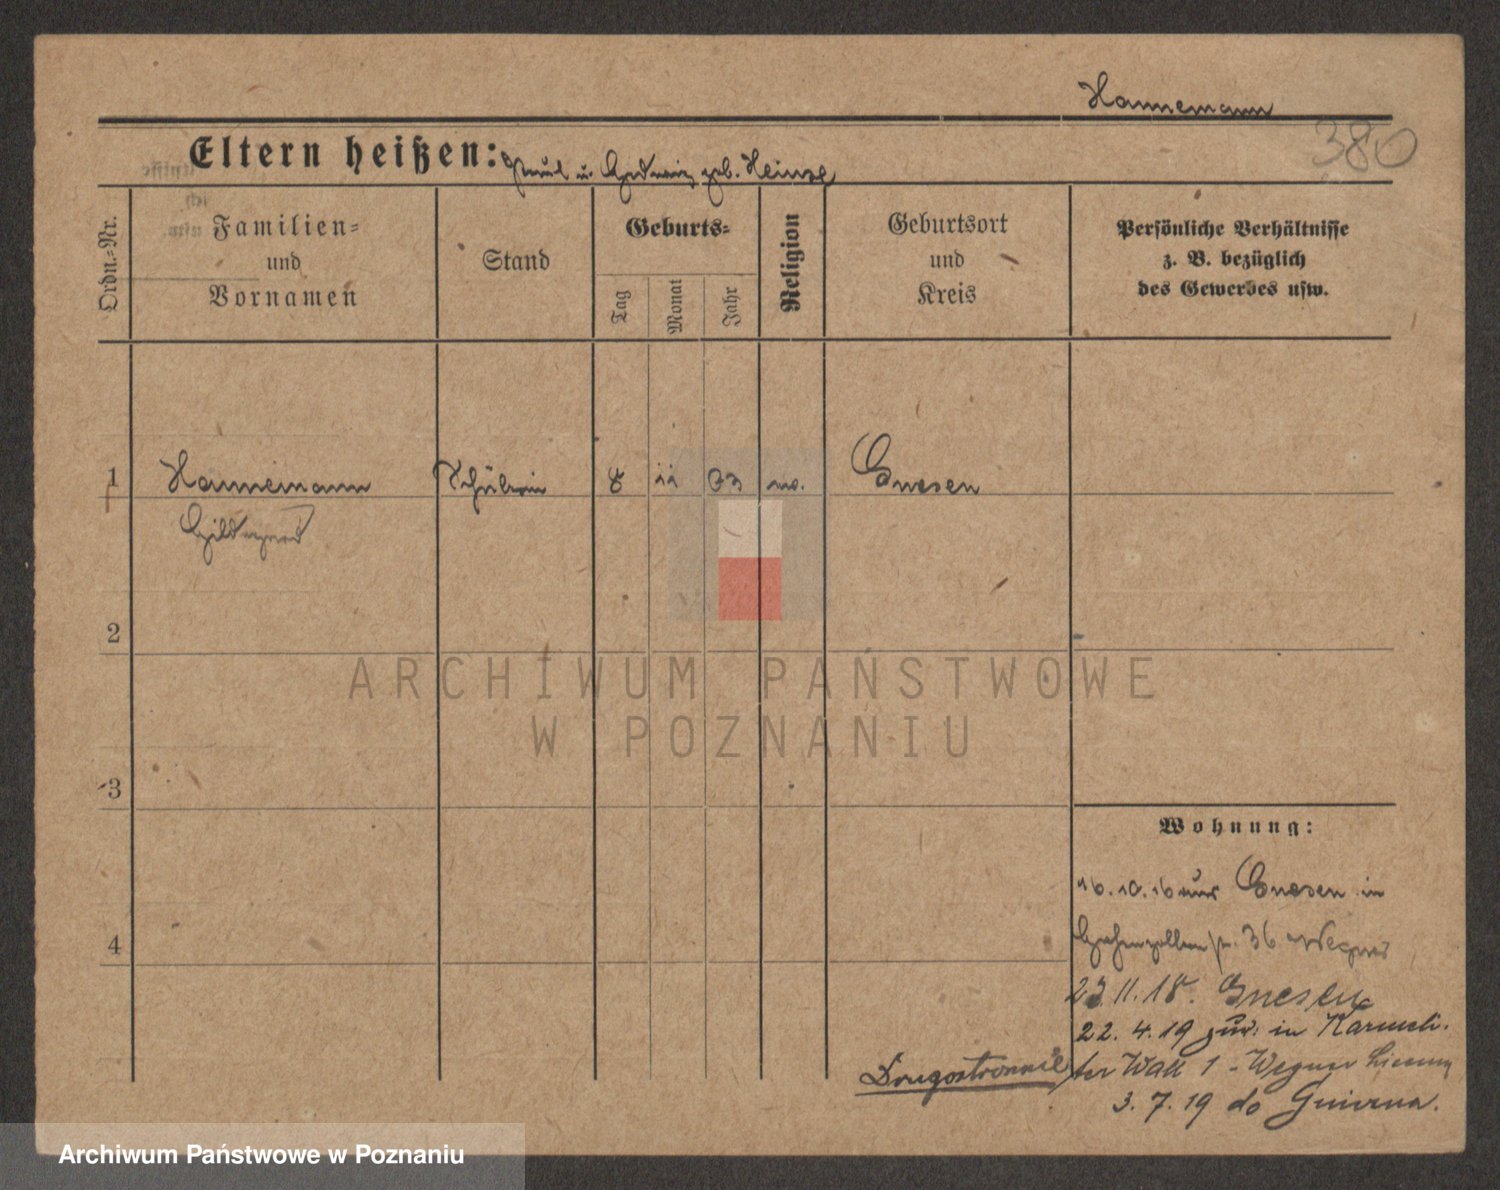 Hannemann
380
Eltern heißen: Paul u. Hedwig geb. Heinze
Ordn.-Nr.
Familien-
und
Vornamen
Stand
Geburts-
Tag
Monat
Jahr
Religion
Geburtsort
und
Kreis
Persönliche Verhältnisse
z. B. bezüglich
des Gewerbes usw.
1 Hannemann Schülerin 8 11 03 ev. Gnesen
Hildegard
2
ARCHIWUM PAŃSTWOWE
W POZNANIU
3
Wohnung:
16.10.16 aus Gnesen in
4
Hohenzollernstr. 36 Wegner
23.11.18. Gnesen
22.4.19 zur. in Karmeli-
Drugostronnie ter Wall 1 - Wegner
3.7.19 do Gniezna.
Archiwum Państwowe w Poznaniu